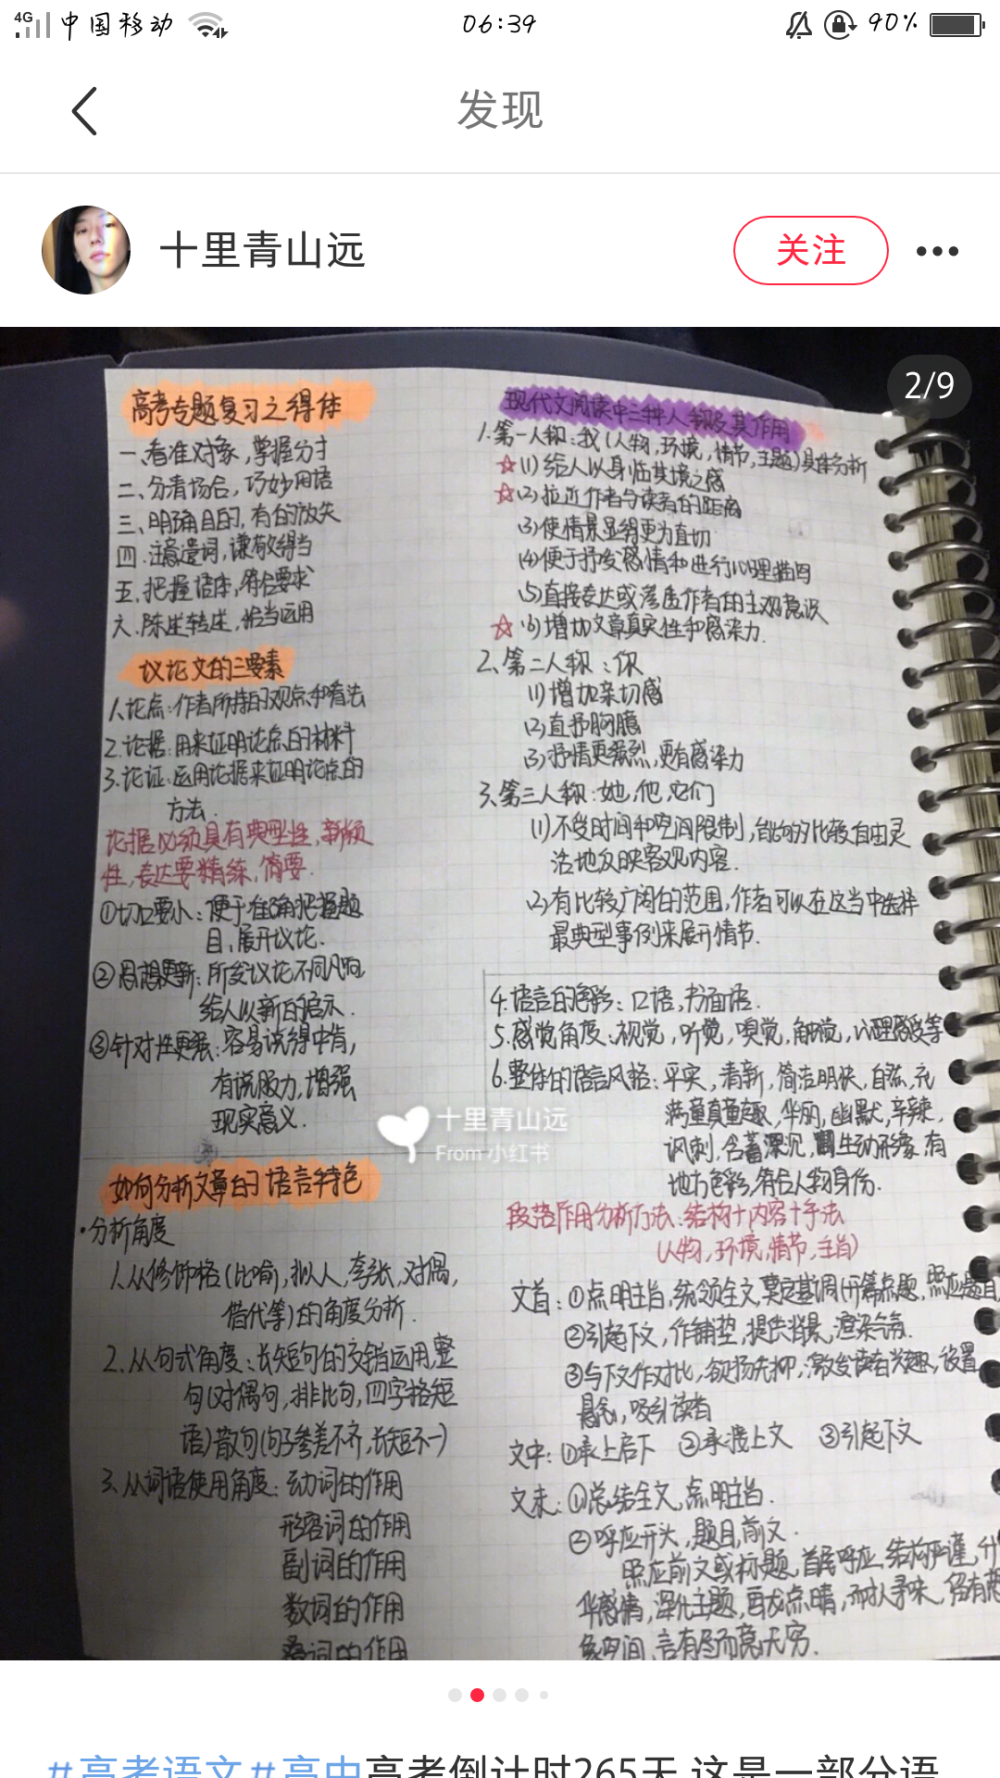 4G 中国移动 06:39 90%
发现
十里青山远 关注
2/9
高考专题复习之得体
一、看准对象,掌握分寸
二、分清场合,巧妙用语
三、明确目的,有的放矢
四、注意遣词,谦敬得当
五、把握语体,符合要求
六、陈述转述,恰当运用
议论文的三要素
1.论点:作者所持的观点和看法
2.论据:用来证明论点的材料
3.论证:运用论据来证明论点的
方法.
论据必须具有典型性,新颖
性,表达要精练,简要.
①切口要小:便于准确把握题
目,展开议论.
②思想更新:所发议论不同凡响
给人以新的启示.
③针对性更强:容易说得中肯,
有说服力,增强
现实意义.
如何分析文章的语言特色
·分析角度
1.从修饰格(比喻,拟人,夸张,对偶,
借代等)的角度分析.
2.从句式角度:长短句的交错运用,整
句(对偶句,排比句,四字格短
语)散句(句子参差不齐,长短不一)
3.从词语使用角度:动词的作用
形容词的作用
副词的作用
数词的作用
叠词的作用
现代文阅读中三种人称及其作用
1.第一人称:我(人物,环境,情节,主题)具体分析
☆(1)给人以身临其境之感
☆(2)拉近作者与读者的距离
(3)使情景显得更为直切
(4)便于抒发感情和进行心理描写
(5)直接表达或渗透作者的主观意识
☆(6)增加文章真实性和感染力.
2.第二人称:你
(1)增加亲切感
(2)直抒胸臆
(3)抒情更强烈,更有感染力
3.第三人称:她,他,它们
(1)不受时间和空间限制,能够比较自由灵
活地反映客观内容.
(2)有比较广阔的范围,作者可以在这当中选择
最典型事例来展开情节.
4.语言的色彩:口语,书面语.
5.感觉角度:视觉,听觉,嗅觉,触觉,心理感受等
6.整体的语言风格:平实,清新,简洁明快,自然,充
满童真童趣,华丽,幽默,辛辣,
讽刺,含蓄深沉,生动形象,有
地方色彩,符合人物身份.
十里青山远
From 小红书
段落作用分析方法:结构+内容+手法
(人物,环境,情节,主旨)
文首:①点明主旨,统领全文,奠定基调(开篇点题,照应题目
②引起下文,作铺垫,提供背景,渲染气氛.
③与下文作对比,欲扬先抑,激发读者兴趣,设置
悬念,吸引读者
文中:①承上启下 ②承接上文 ③引起下文
文末:①总结全文,点明主旨.
②呼应开头,题目,前文.
照应前文或标题,首尾呼应,结构严谨,升
华感情,深化主题,画龙点睛,耐人寻味,留有想
象空间,言有尽而意无穷.
#高考语文#高中高考倒计时265天 这是一部分语